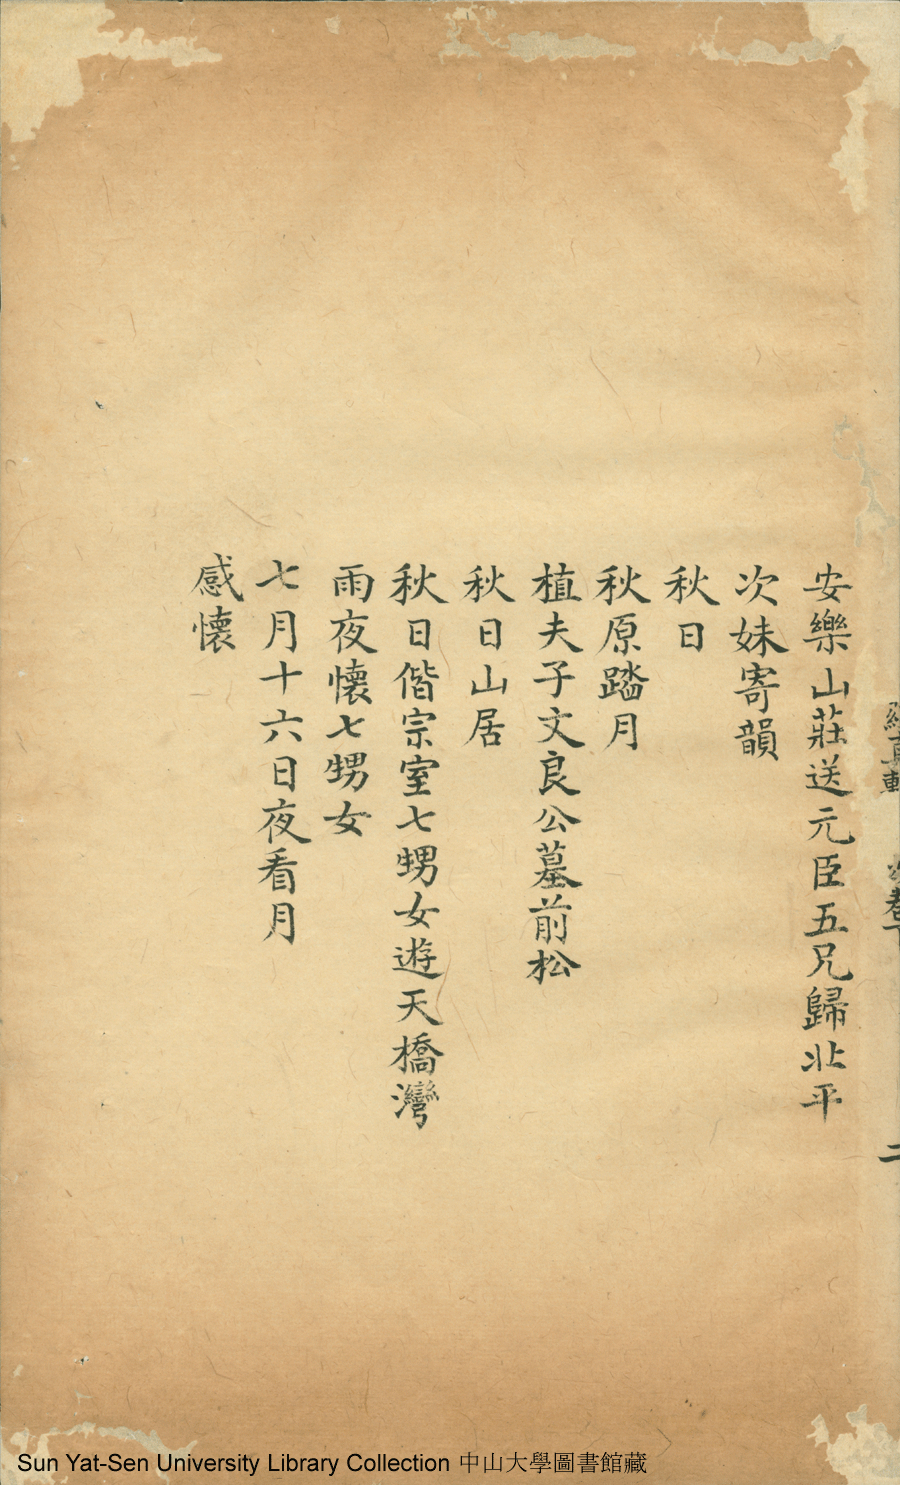 安樂山莊送元臣五兄歸北平
次妹寄韻
秋日
秋原踏月
植夫子文良公墓前松
秋日山居
秋日偕宗室七甥女遊天橋灣
雨夜懷七甥女
七月十六日夜看月
感懷
二
Sun Yat-Sen University Library Collection 中山大學圖書館藏